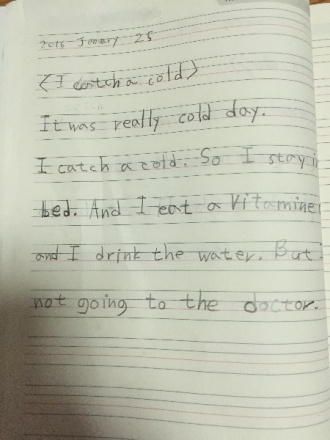 2016 Jonary 25
<I catch a cold>
It was really cold day.
I catch a cold. So I stay i
bed. And I eat a Vitamine
and I drink the water. But
not going to the doctor.